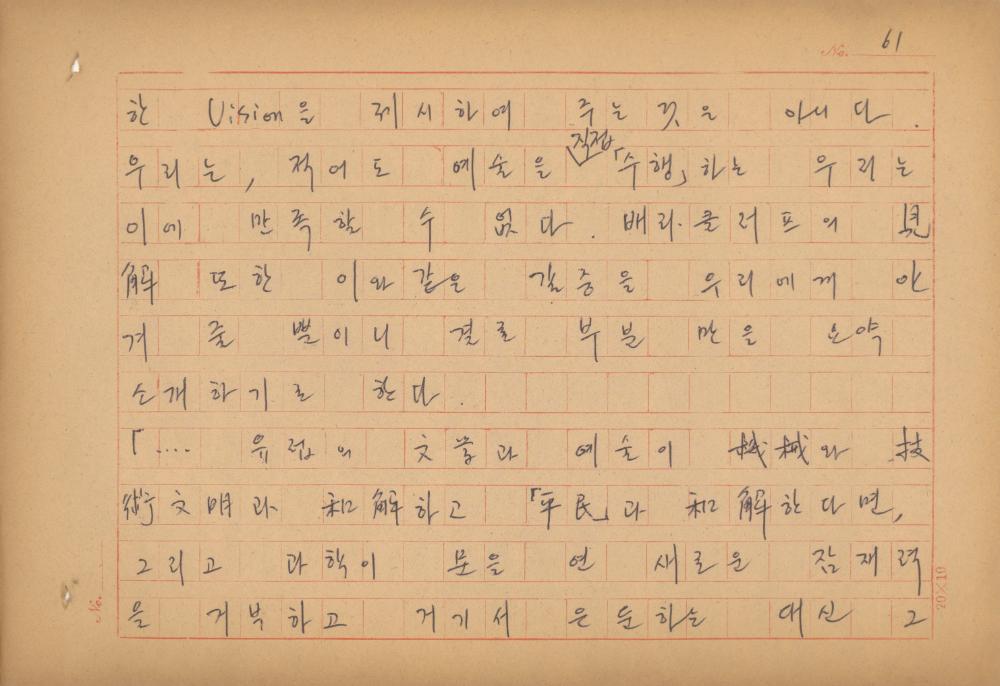 No. 61
한 Vision을 제시하여 주는 것은 아니다.
직접
우리는, 적어도 예술을 「수행」하는 우리는
이에 만족할 수 없다. 배리·클러프의 見
解 또한 이와 같은 갈증을 우리에게 안
겨 줄 뿐이니 결론 부분 만을 요약
소개하기로 한다.
「‥‥ 유럽의 文学과 예술이 機械와 技
術文明과 和解하고 「平民」과 和解한다면,
그리고 과학이 문을 연 새로운 잠재력
을 거부하고 거기서 은둔하는 대신 그
No.
20×10